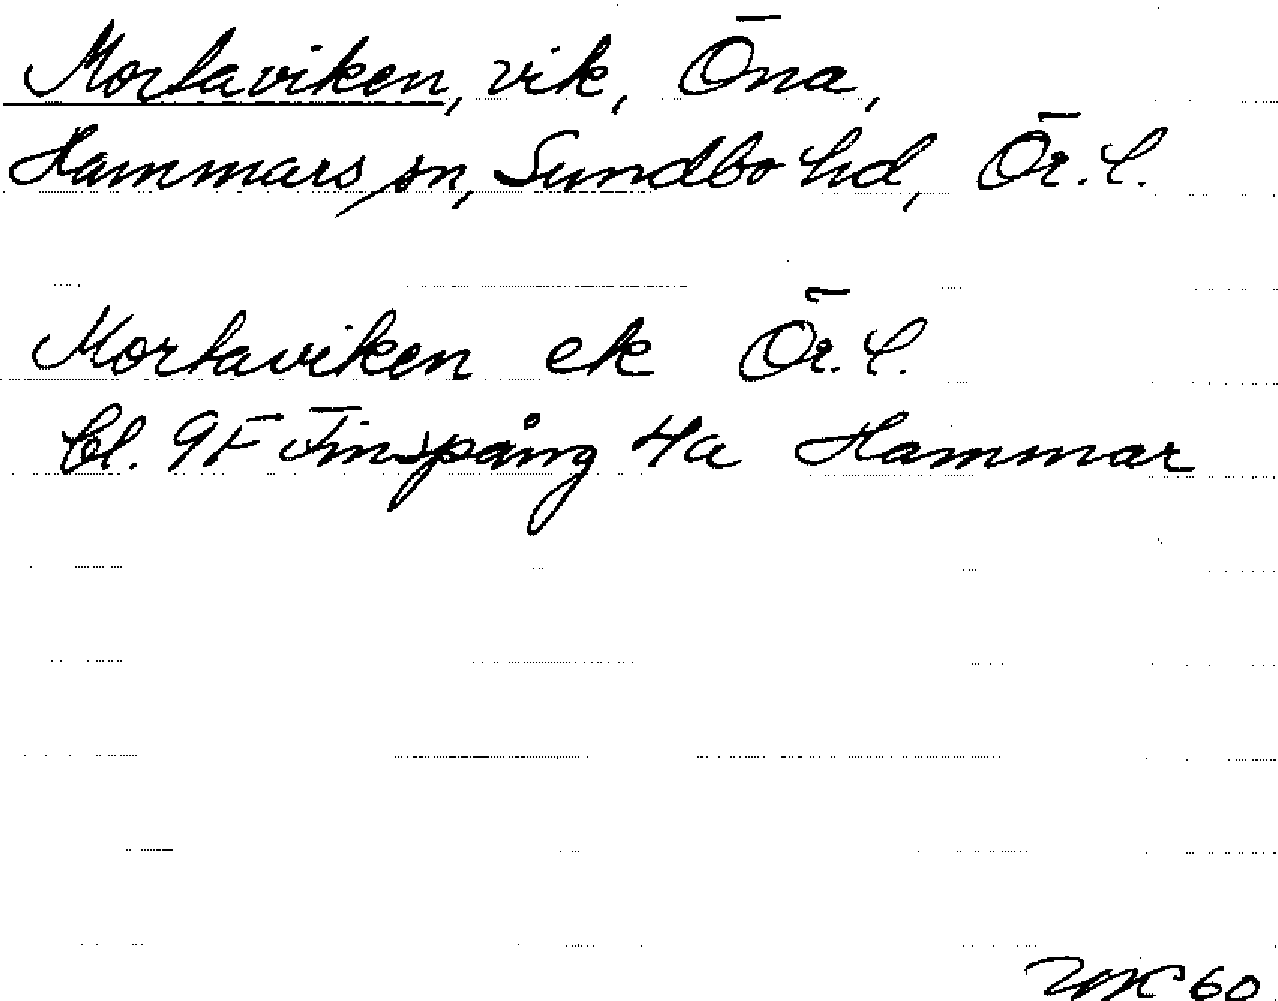 Mortaviken, vik, Öna,
Hammars sn, Sundbo hd, Ör. l.
Mortaviken ek Ör. l.
bl. 9F Finspång 4a Hammar
60